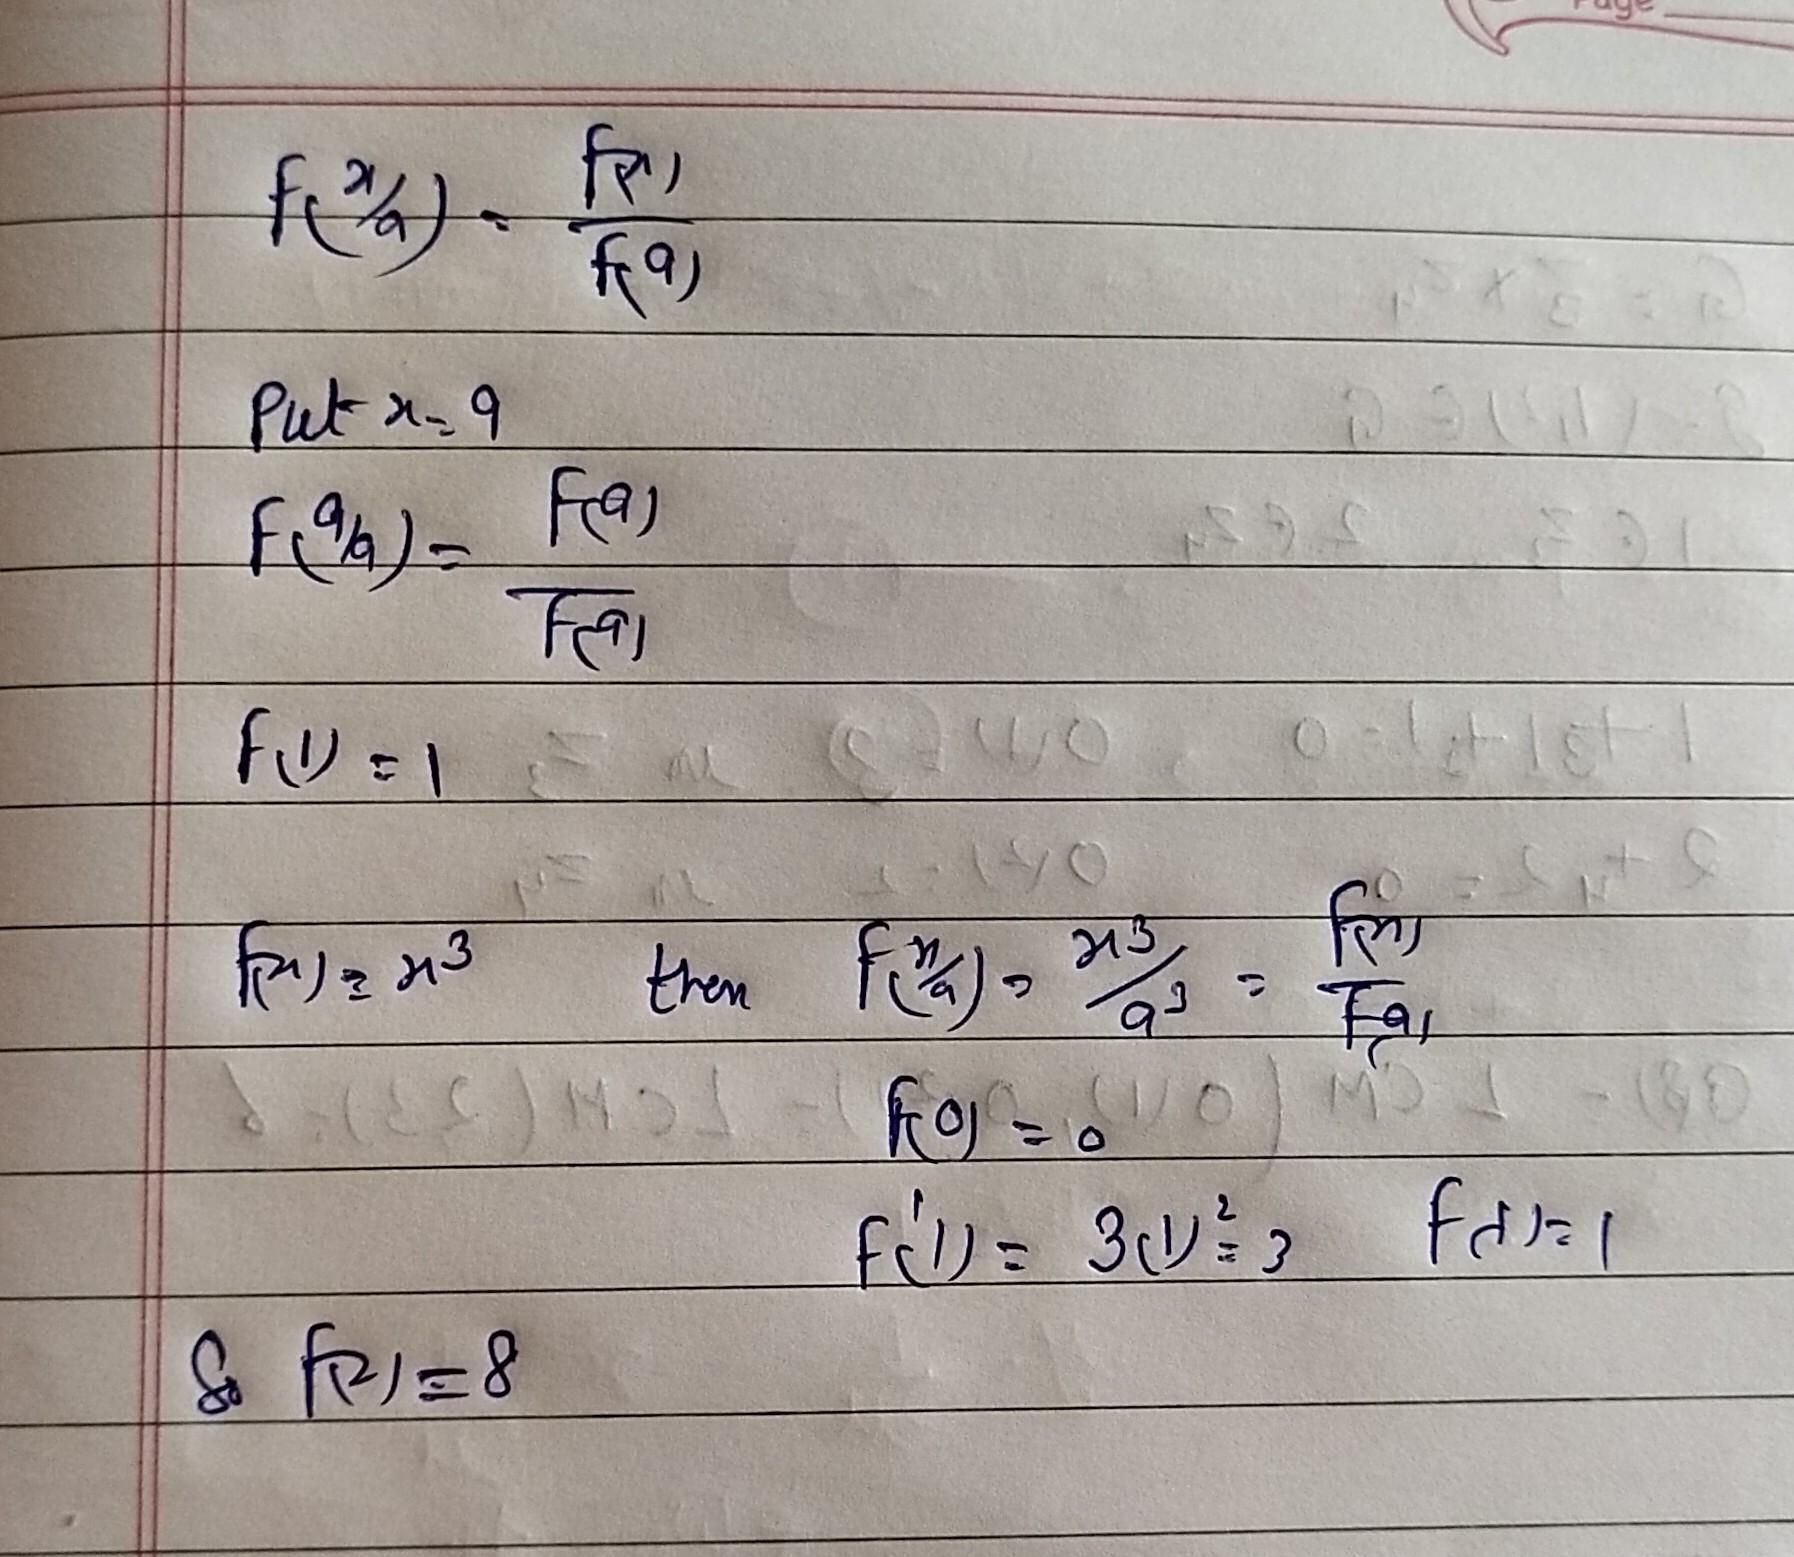 Page
f(x/a) = f(x)/f(a)
Put x = a
f(a/a) = f(a)/f(a)
f(1) = 1
f(x) = x³ then f(x/a) = x³/a³ = f(x)/f(a)
f(0) = 0
f'(1) = 3(1)² = 3 f(1) = 1
So f(2) = 8